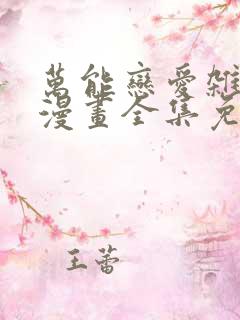 萬能戀愛雜
漫畫全集免
王蕾